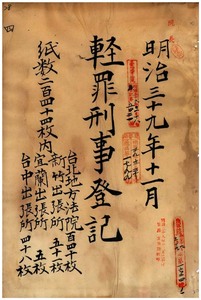 明治三十九年十一月
軽罪刑事登記
紙数二百四十四枚内
台北地方法院百四十枚
新竹出張所五十一枚
宜蘭出張所五枚
台中出張所四十八枚
四